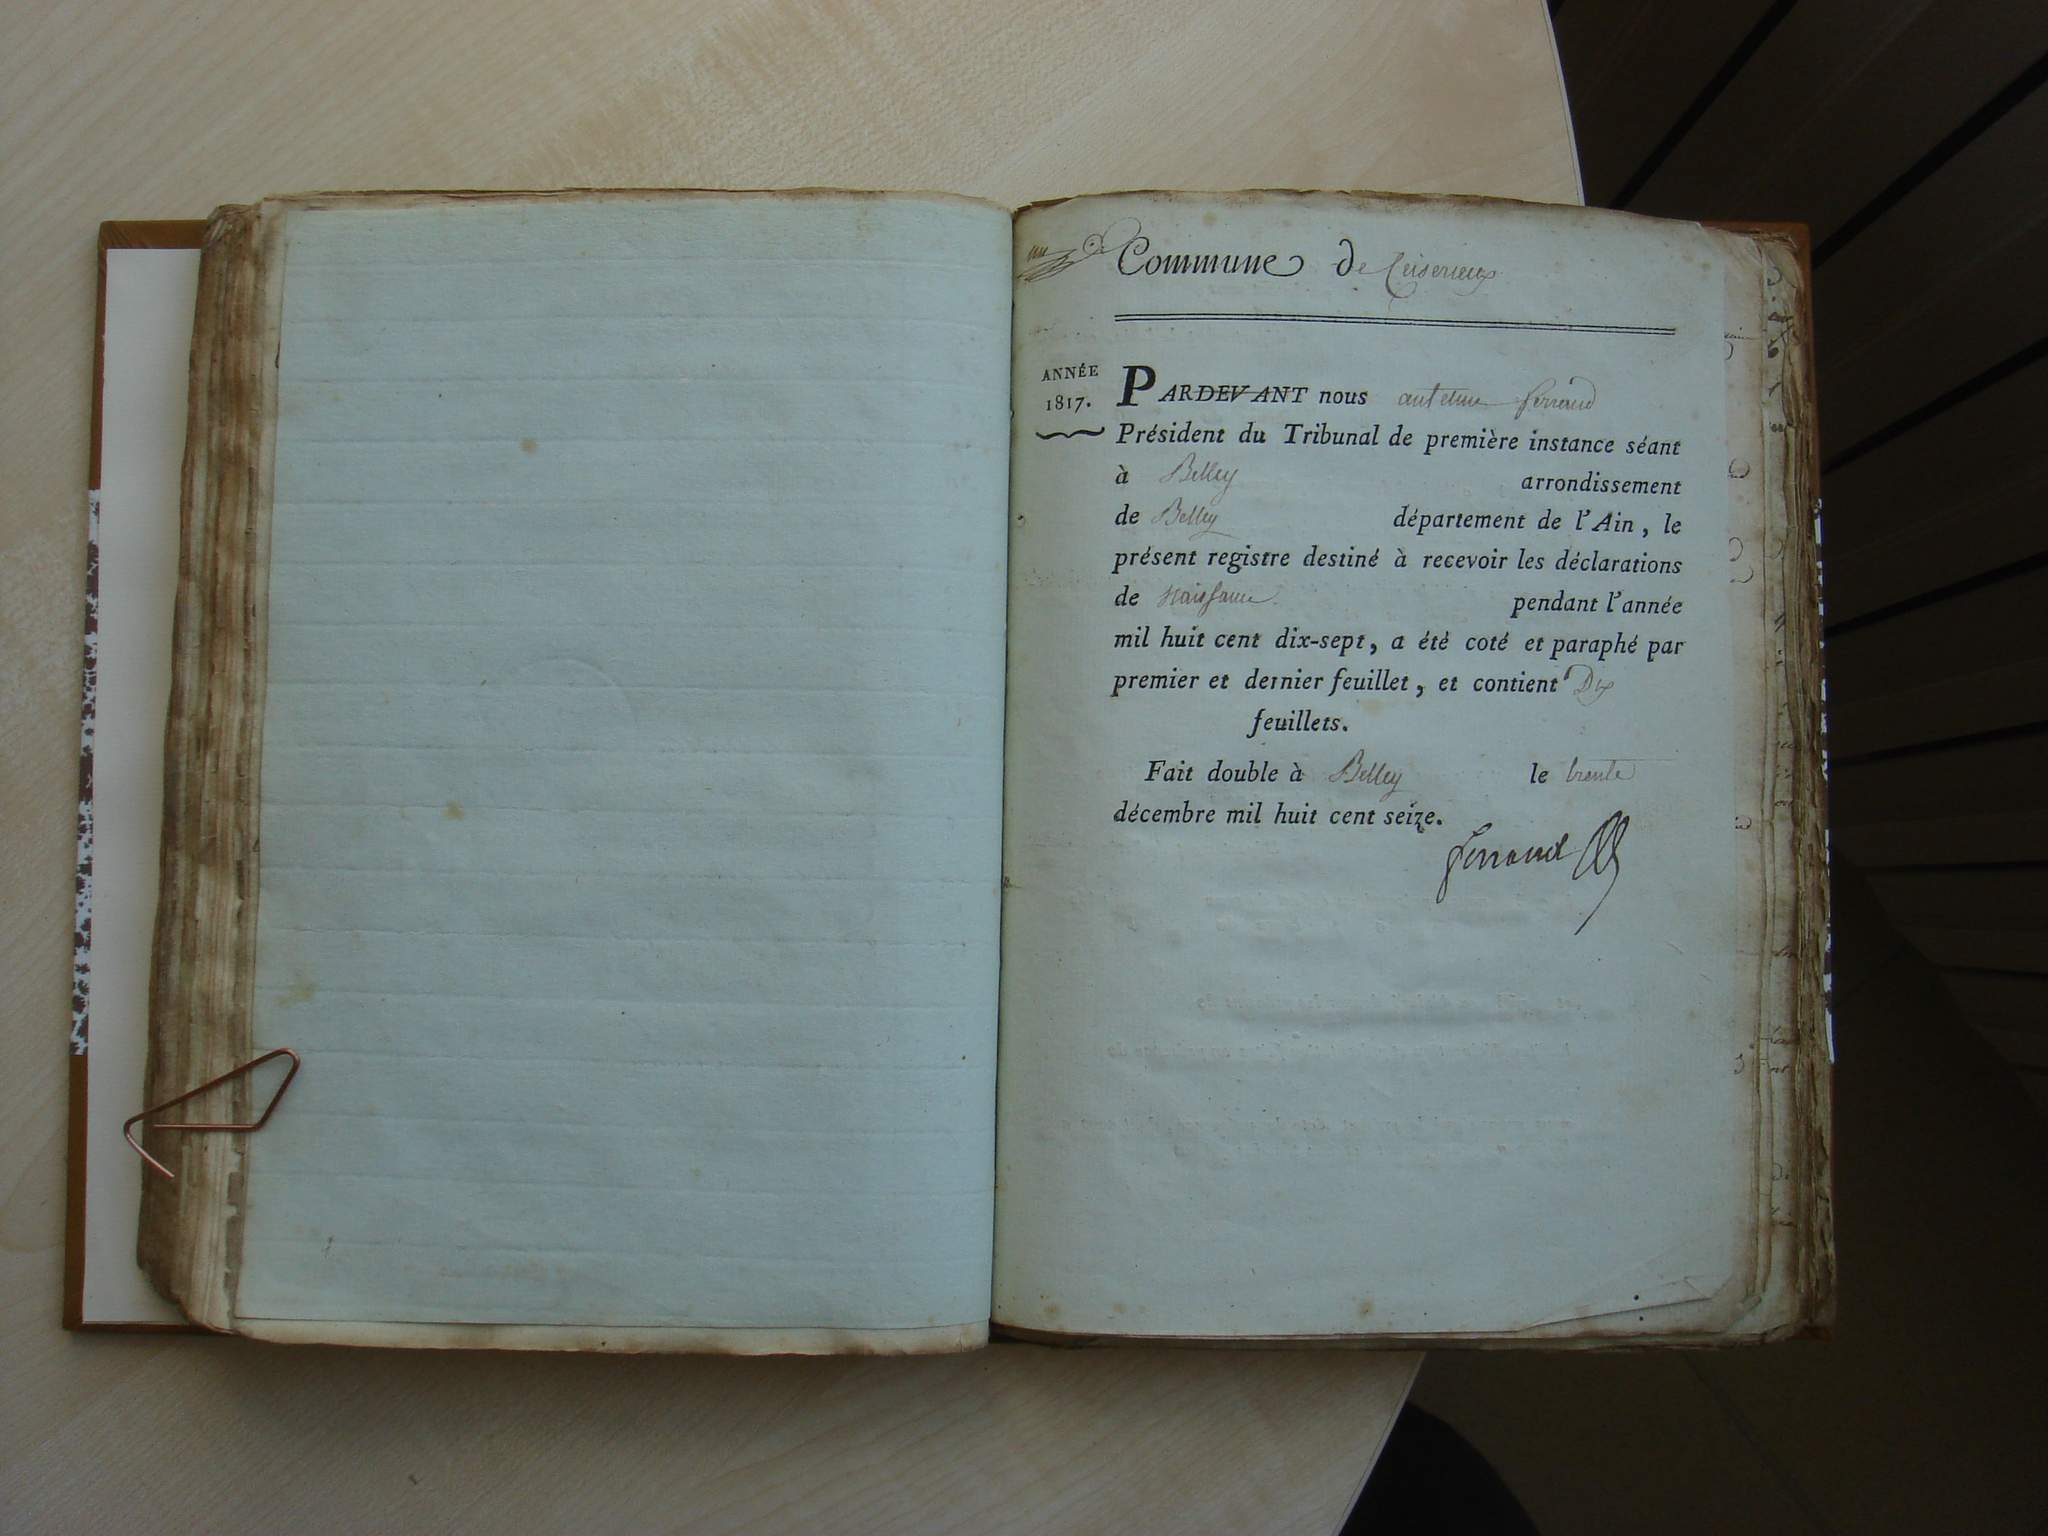 Commune de Ceiserieux
ANNÉE
1817.
PARDEVANT nous antelme ferrand
Président du Tribunal de première instance séant
à Belley arrondissement
de Belley département de l'Ain, le
présent registre destiné à recevoir les déclarations
de Naissance pendant l'année
mil huit cent dix-sept, a été coté et paraphé par
premier et dernier feuillet, et contient Dix
feuillets.
Fait double à Belley le trente
décembre mil huit cent seize.
ferrand